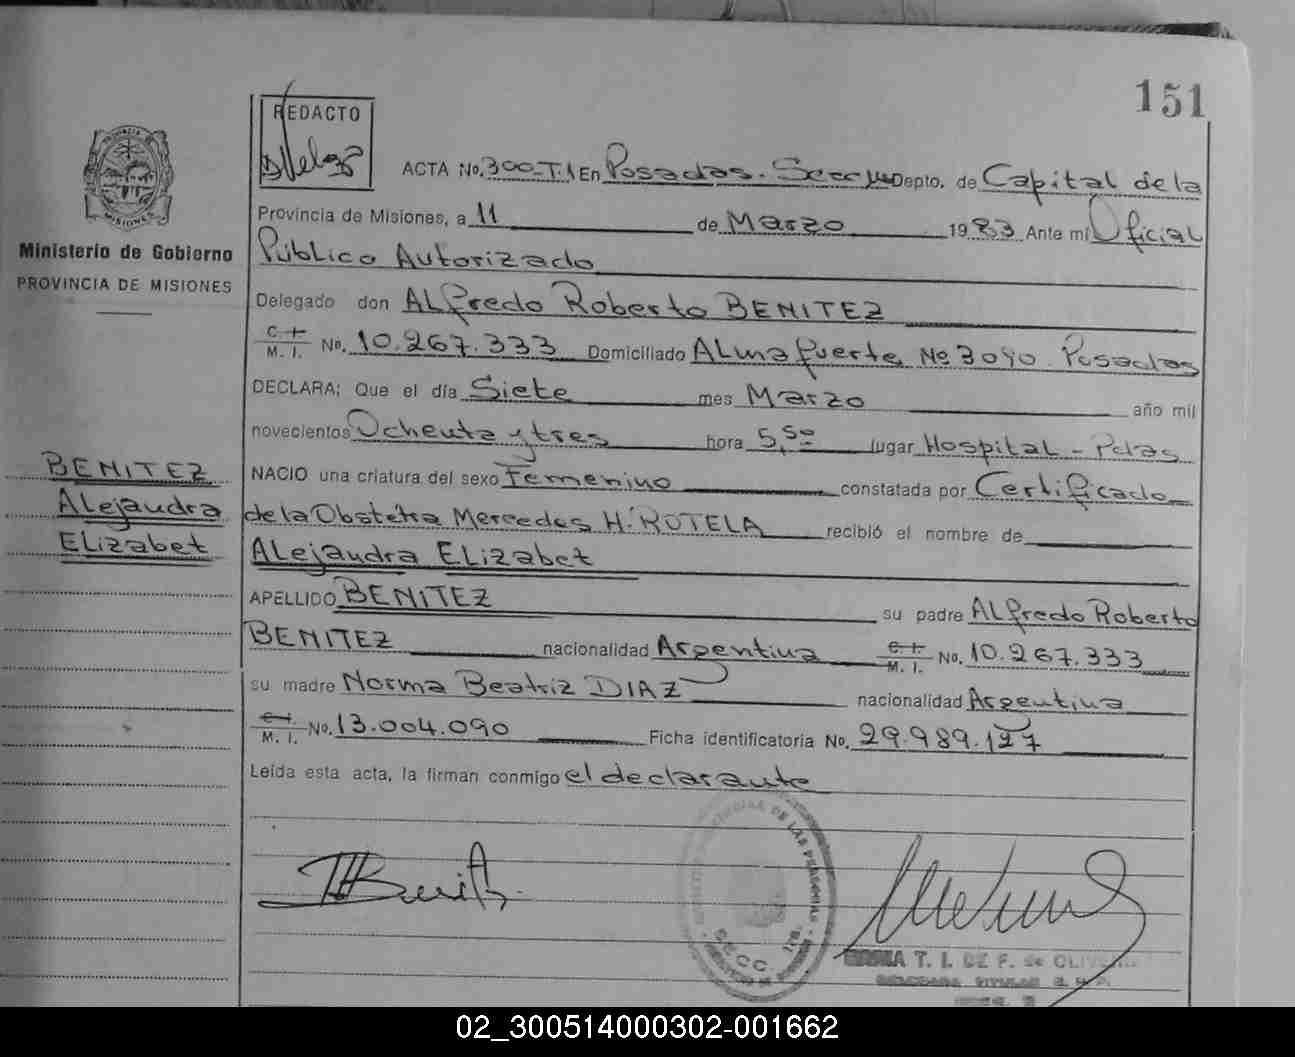 151
REDACTO
PROVINCIA DE
MISIONES
Ministerio de Gobierno
PROVINCIA DE MISIONES
ACTA No. 300-T.1 En Posadas. Depto. de Capital de la
Provincia de Misiones, a 11 de Marzo 1983 Ante mi Oficial
Público Autorizado
Delegado don ALfredo Roberto BENITEZ
M. I. No. 10.267.333 Domiciliado ALmafuerte Nº 3090. Posadas
DECLARA; Que el día Siete mes Marzo año mil
novecientos Ochenta y tres hora 5,50 lugar Hospital - Pdas
NACIO una criatura del sexo Femenino constatada por Certificado
de la Obstetra Mercedes H. ROTELA recibió el nombre de
ALejandra ELizabet
APELLIDO BENITEZ su padre ALfredo Roberto
BENITEZ nacionalidad Argentina M. I. No. 10.267.333
su madre Norma Beatriz DIAZ nacionalidad Argentina
M. I. No. 13.004.090 Ficha identificatoria No. 29.989.127
Leída esta acta, la firman conmigo el declarante
BENITEZ
ALejandra
ELizabet
DE LAS PERSONAS
T. I. DE F. de
02_300514000302-001662